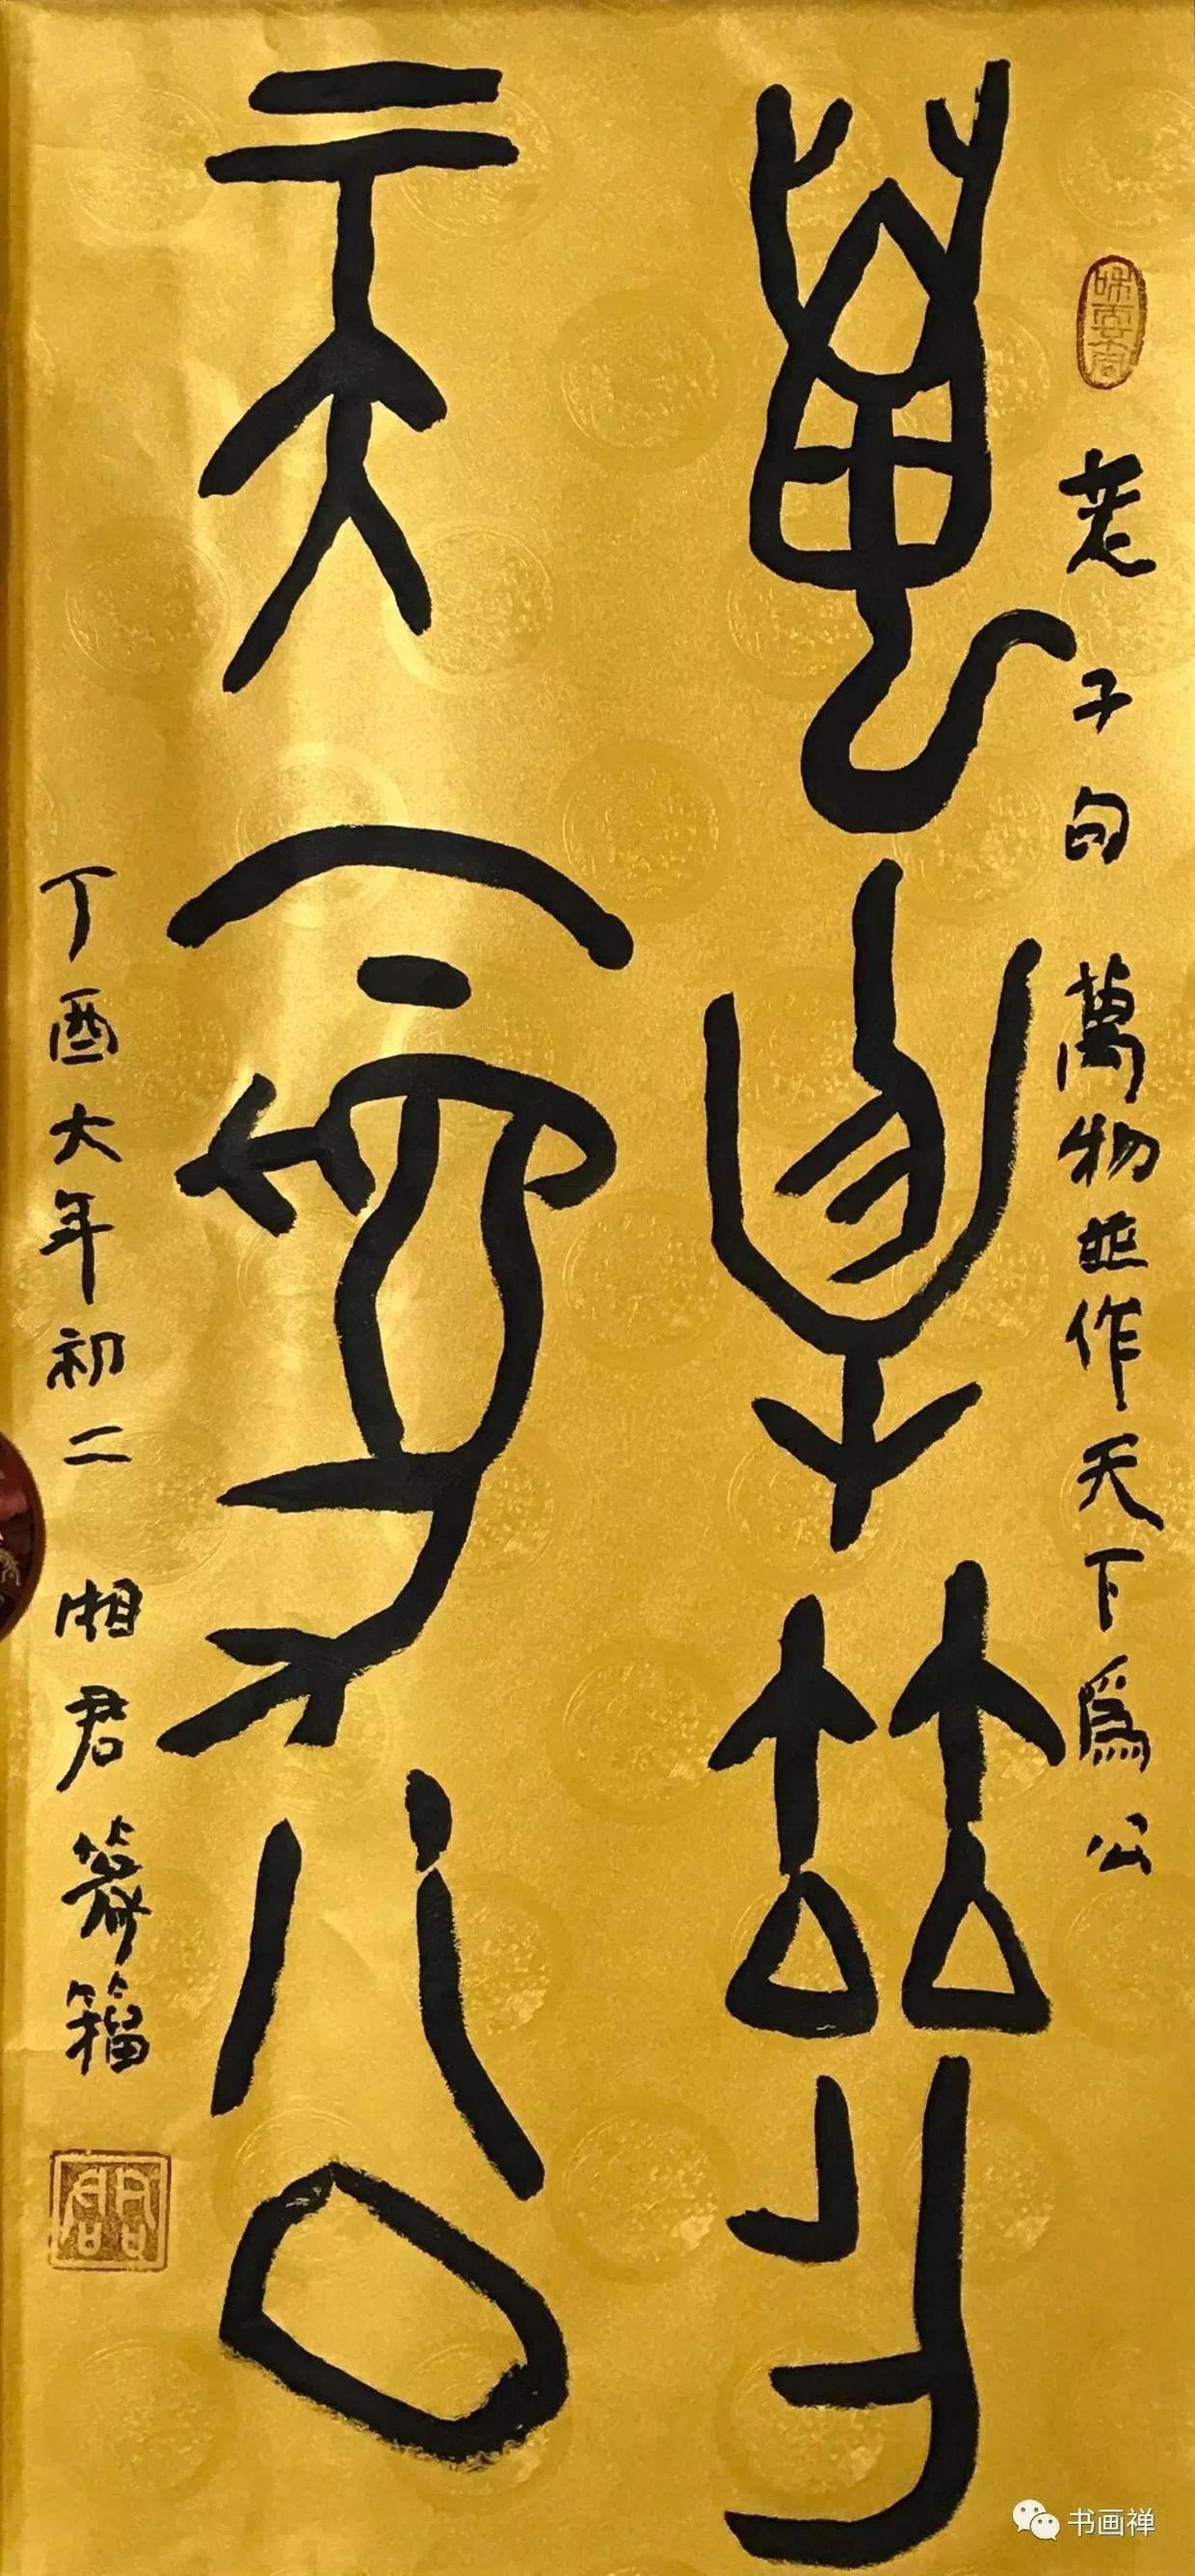 萬物並作
天下為公
老子句 萬物並作天下爲公
丁酉大年初二 湘君篆籀
书画禅